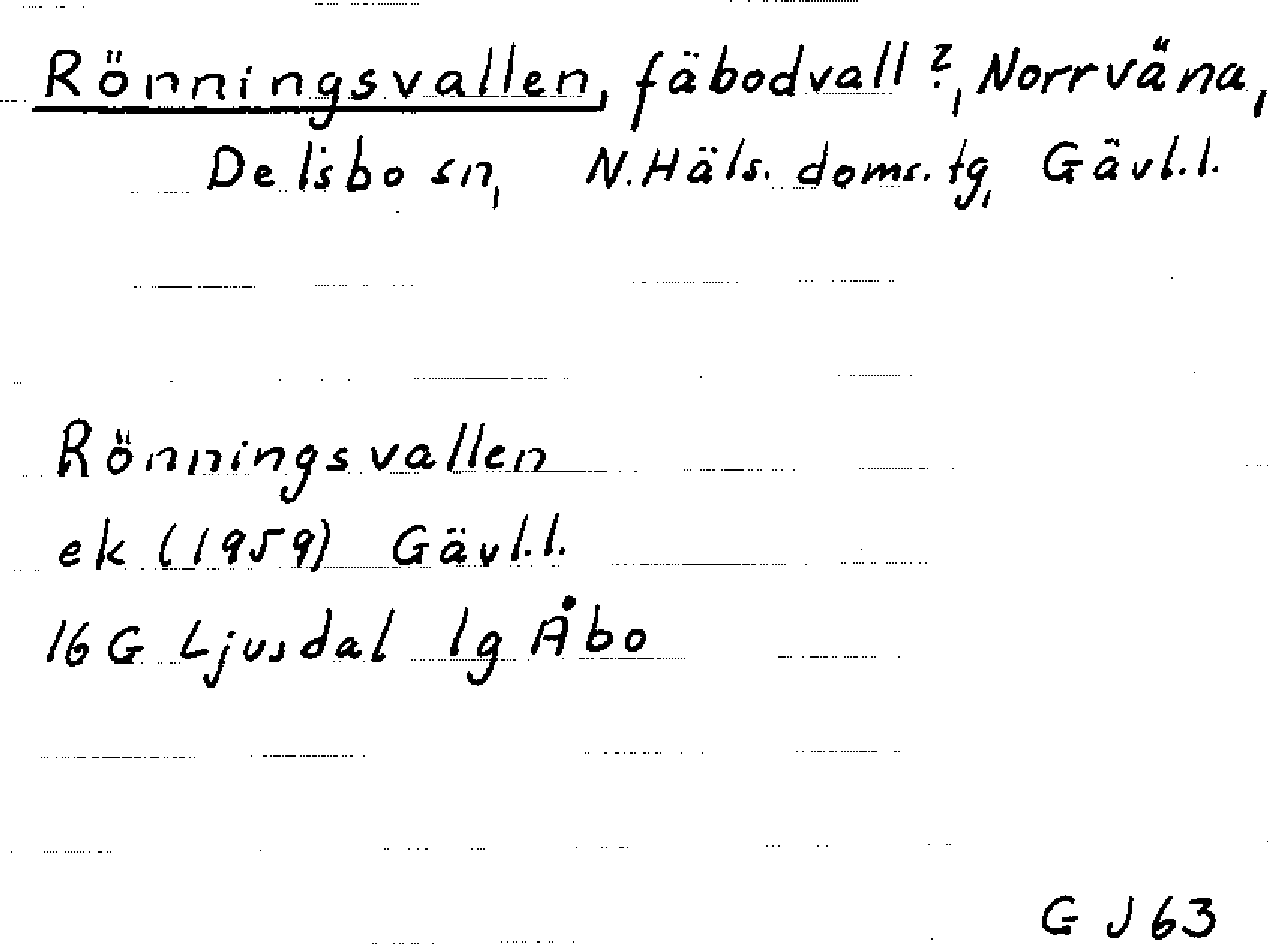 Rönningsvallen, fäbodvall?, Norrväna,
Delsbo sn, N. Häls. doms. tg, Gävl.l.
Rönningsvallen
ek (1959) Gävl.l.
16 G Ljusdal 1g Åbo
G J 63